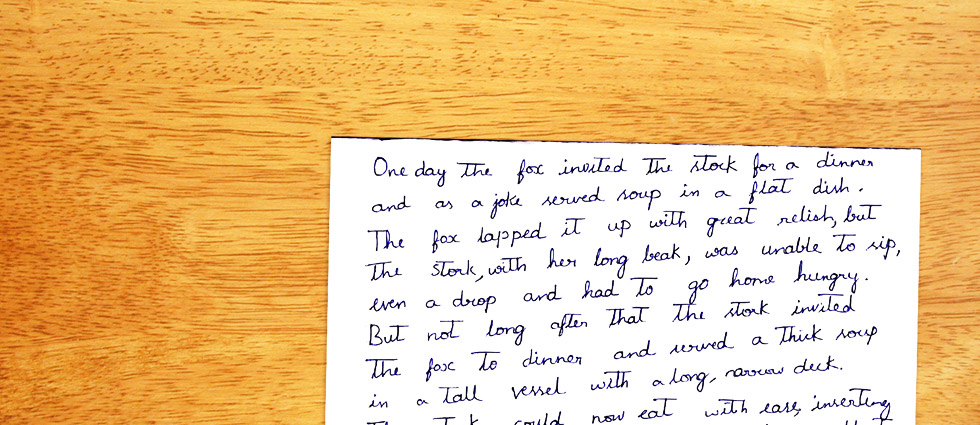 One day the fox invited the stock for a dinner
and as a joke served soup in a flat dish.
The fox lapped it up with great relish, but
the stork, with her long beak, was unable to sip,
even a drop and had to go home hungry.
But not long after that the stork invited
the fox to dinner and served a thick soup
in a tall vessel with a long, narrow deck.
could now eat with ease, inserting